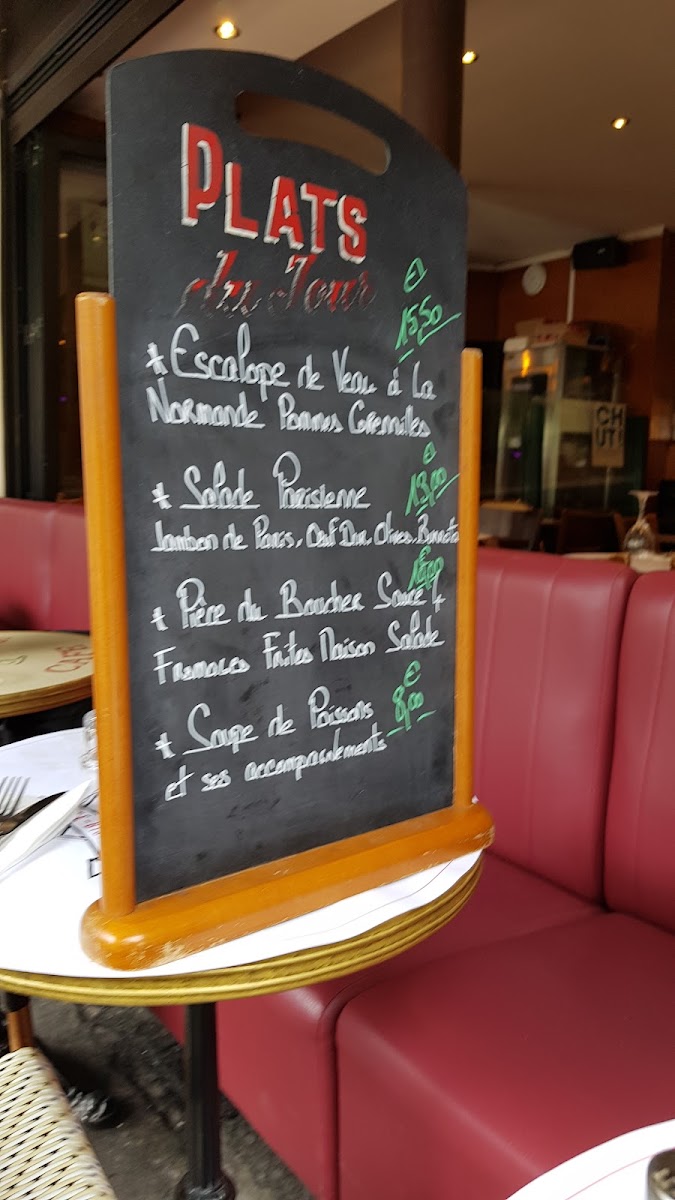 PLATS
du Jour
€
15,50
* Escalope de Veau à La
Normande Pommes Grenailles
€
13,00
* Salade Parisienne
Jambon de Paris, Oeuf Dur, Olives,
€
* Pièce du Boucher Sauce 4
Fromages Frites Maison Salade
€
8,00
* Soupe de Poissons
et ses accompagnements
CH
UT!
CAFÉ